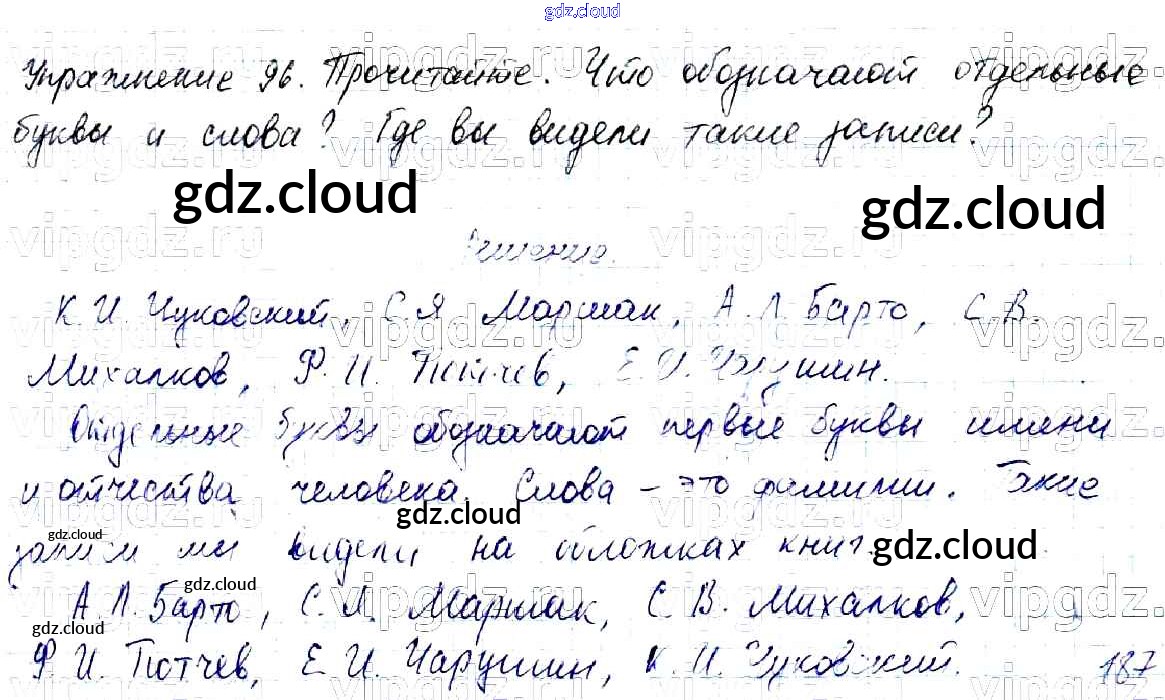 gdz.cloud
Упражнение 96. Прочитайте. Что обозначают отдельные
буквы и слова? Где вы видели такие записи?
gdz.cloud gdz.cloud
Решение.
К. И. Чуковский, С. Я. Маршак, А. Л. Барто, С. В.
Михалков, Ф. И. Тютчев, Е. И. Чарушин.
Отдельные буквы обозначают первые буквы имени
и отчества человека. Слова – это фамилии. Такие
gdz.cloud
gdz.cloud
записи мы видели на обложках книг.
gdz.cloud
gdz.cloud
А. Л. Барто, С. Я. Маршак, С. В. Михалков,
gdz.cloud
Ф. И. Тютчев, Е. И. Чарушин, К. И. Чуковский.
187
vipgdz.ru